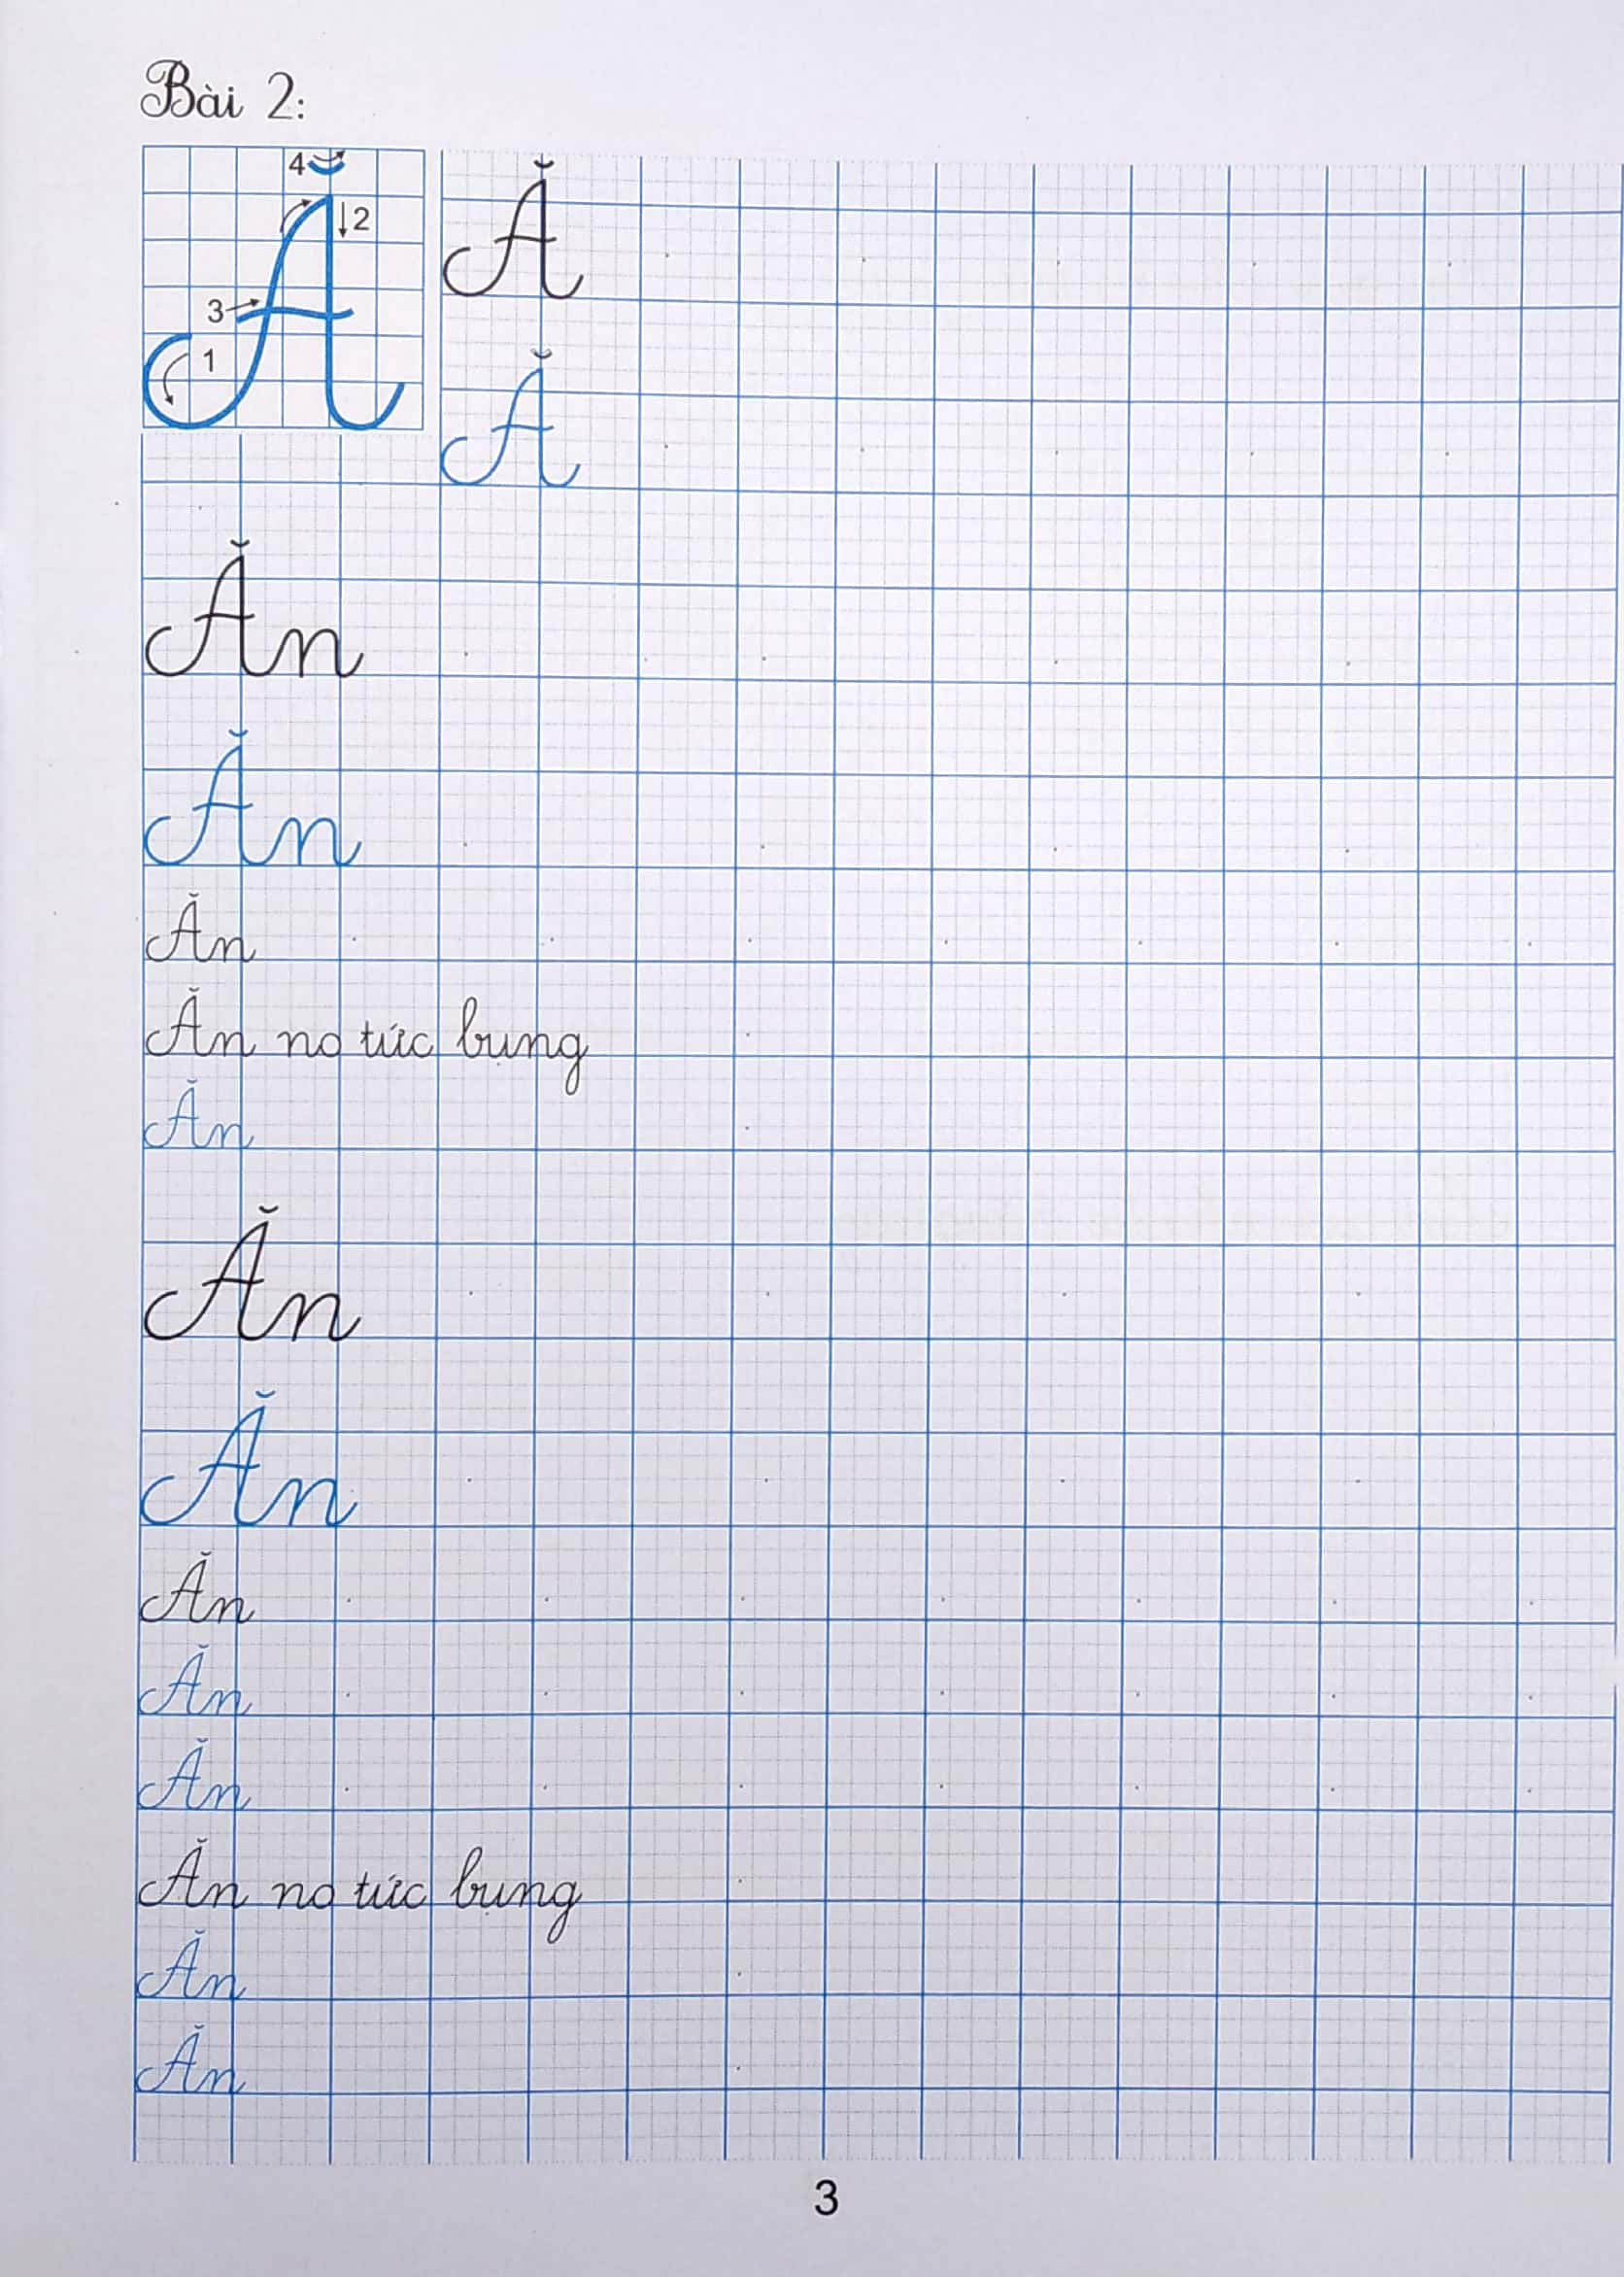 Bài 2:
4
2
3
1
Ă
Ă
Ăn
Ăn
Ăn
Ăn no tức bụng
Ăn
Ăn
Ăn
Ăn
Ăn
Ăn
Ăn no tức bụng
Ăn
Ăn
3